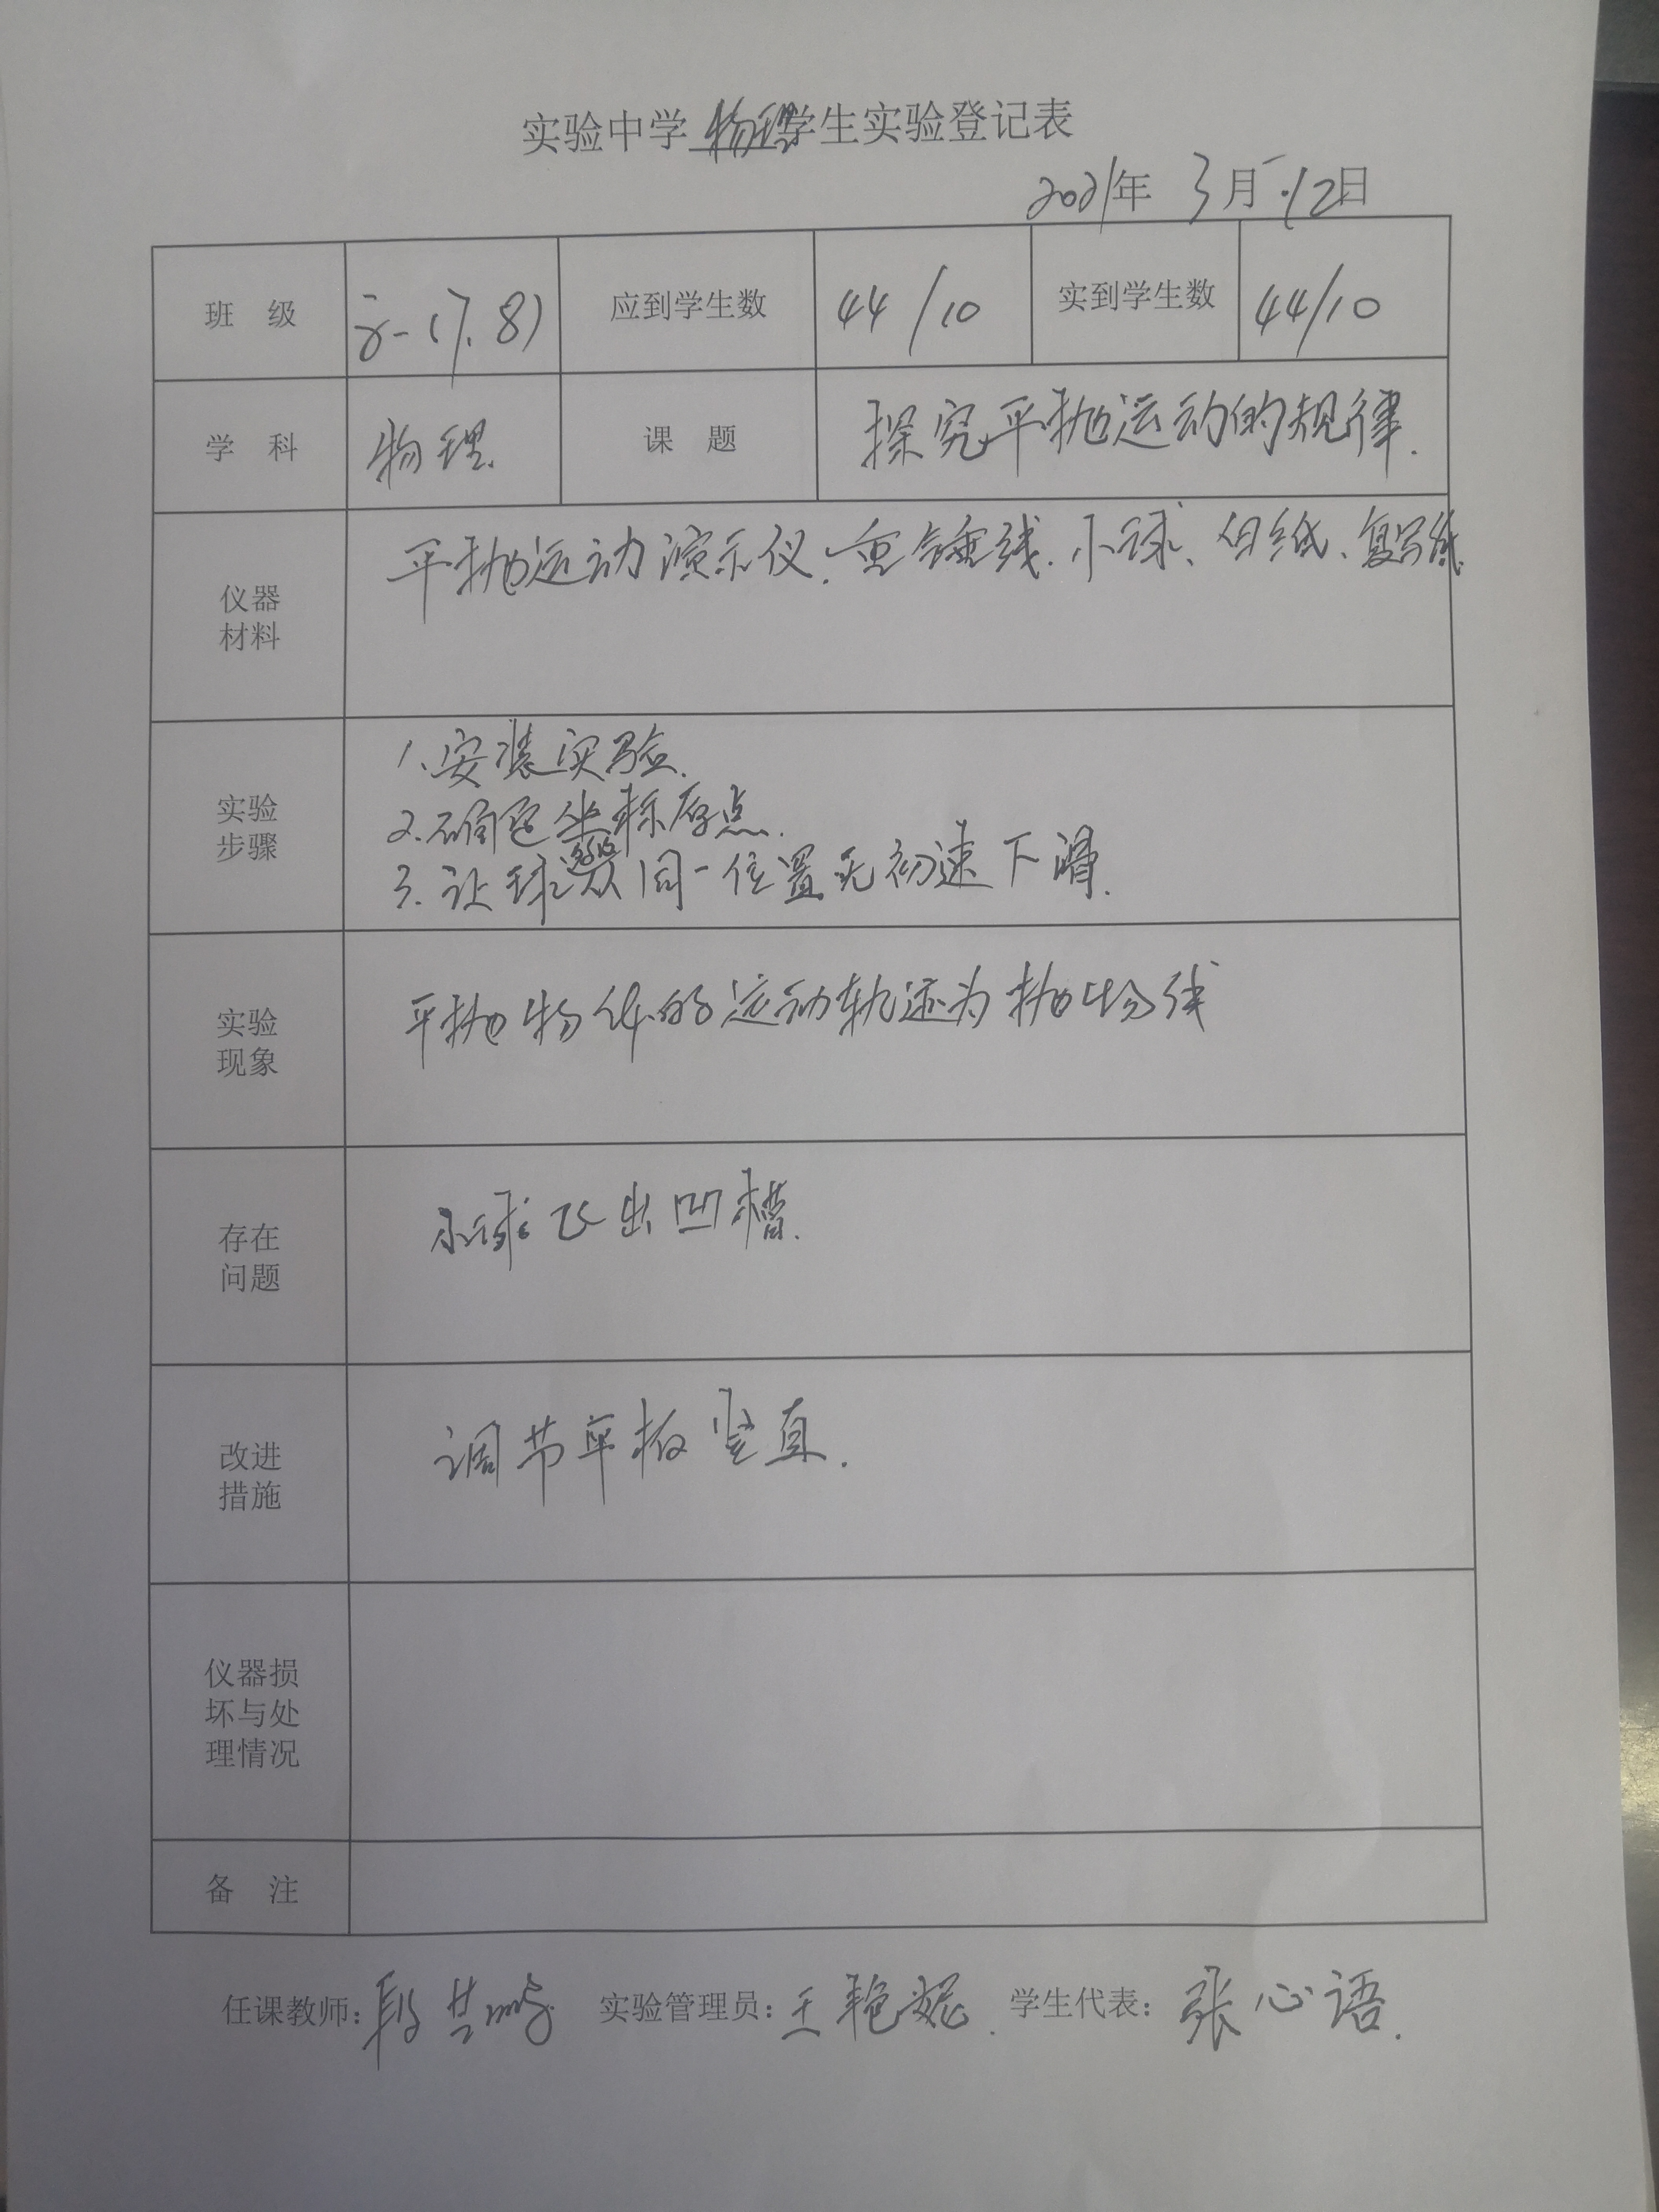 实验中学物理学生实验登记表
2021年 3月12日
班 级 高一(7.8) 应到学生数 44/10 实到学生数 44/10
学 科 物理. 课 题 探究平抛运动的规律.
仪器材料 平抛运动演示仪、重锤线、小球、白纸、复写纸.
实验步骤
1.安装实验.
2.确定坐标原点.
3.让球从同一位置无初速下滑.
实验现象 平抛物体的运动轨迹为抛物线
存在问题 小球飞出凹槽.
改进措施 调节平板竖直.
仪器损坏与处理情况
备 注
任课教师: 段 实验管理员: 王艳妮. 学生代表: 张心语.